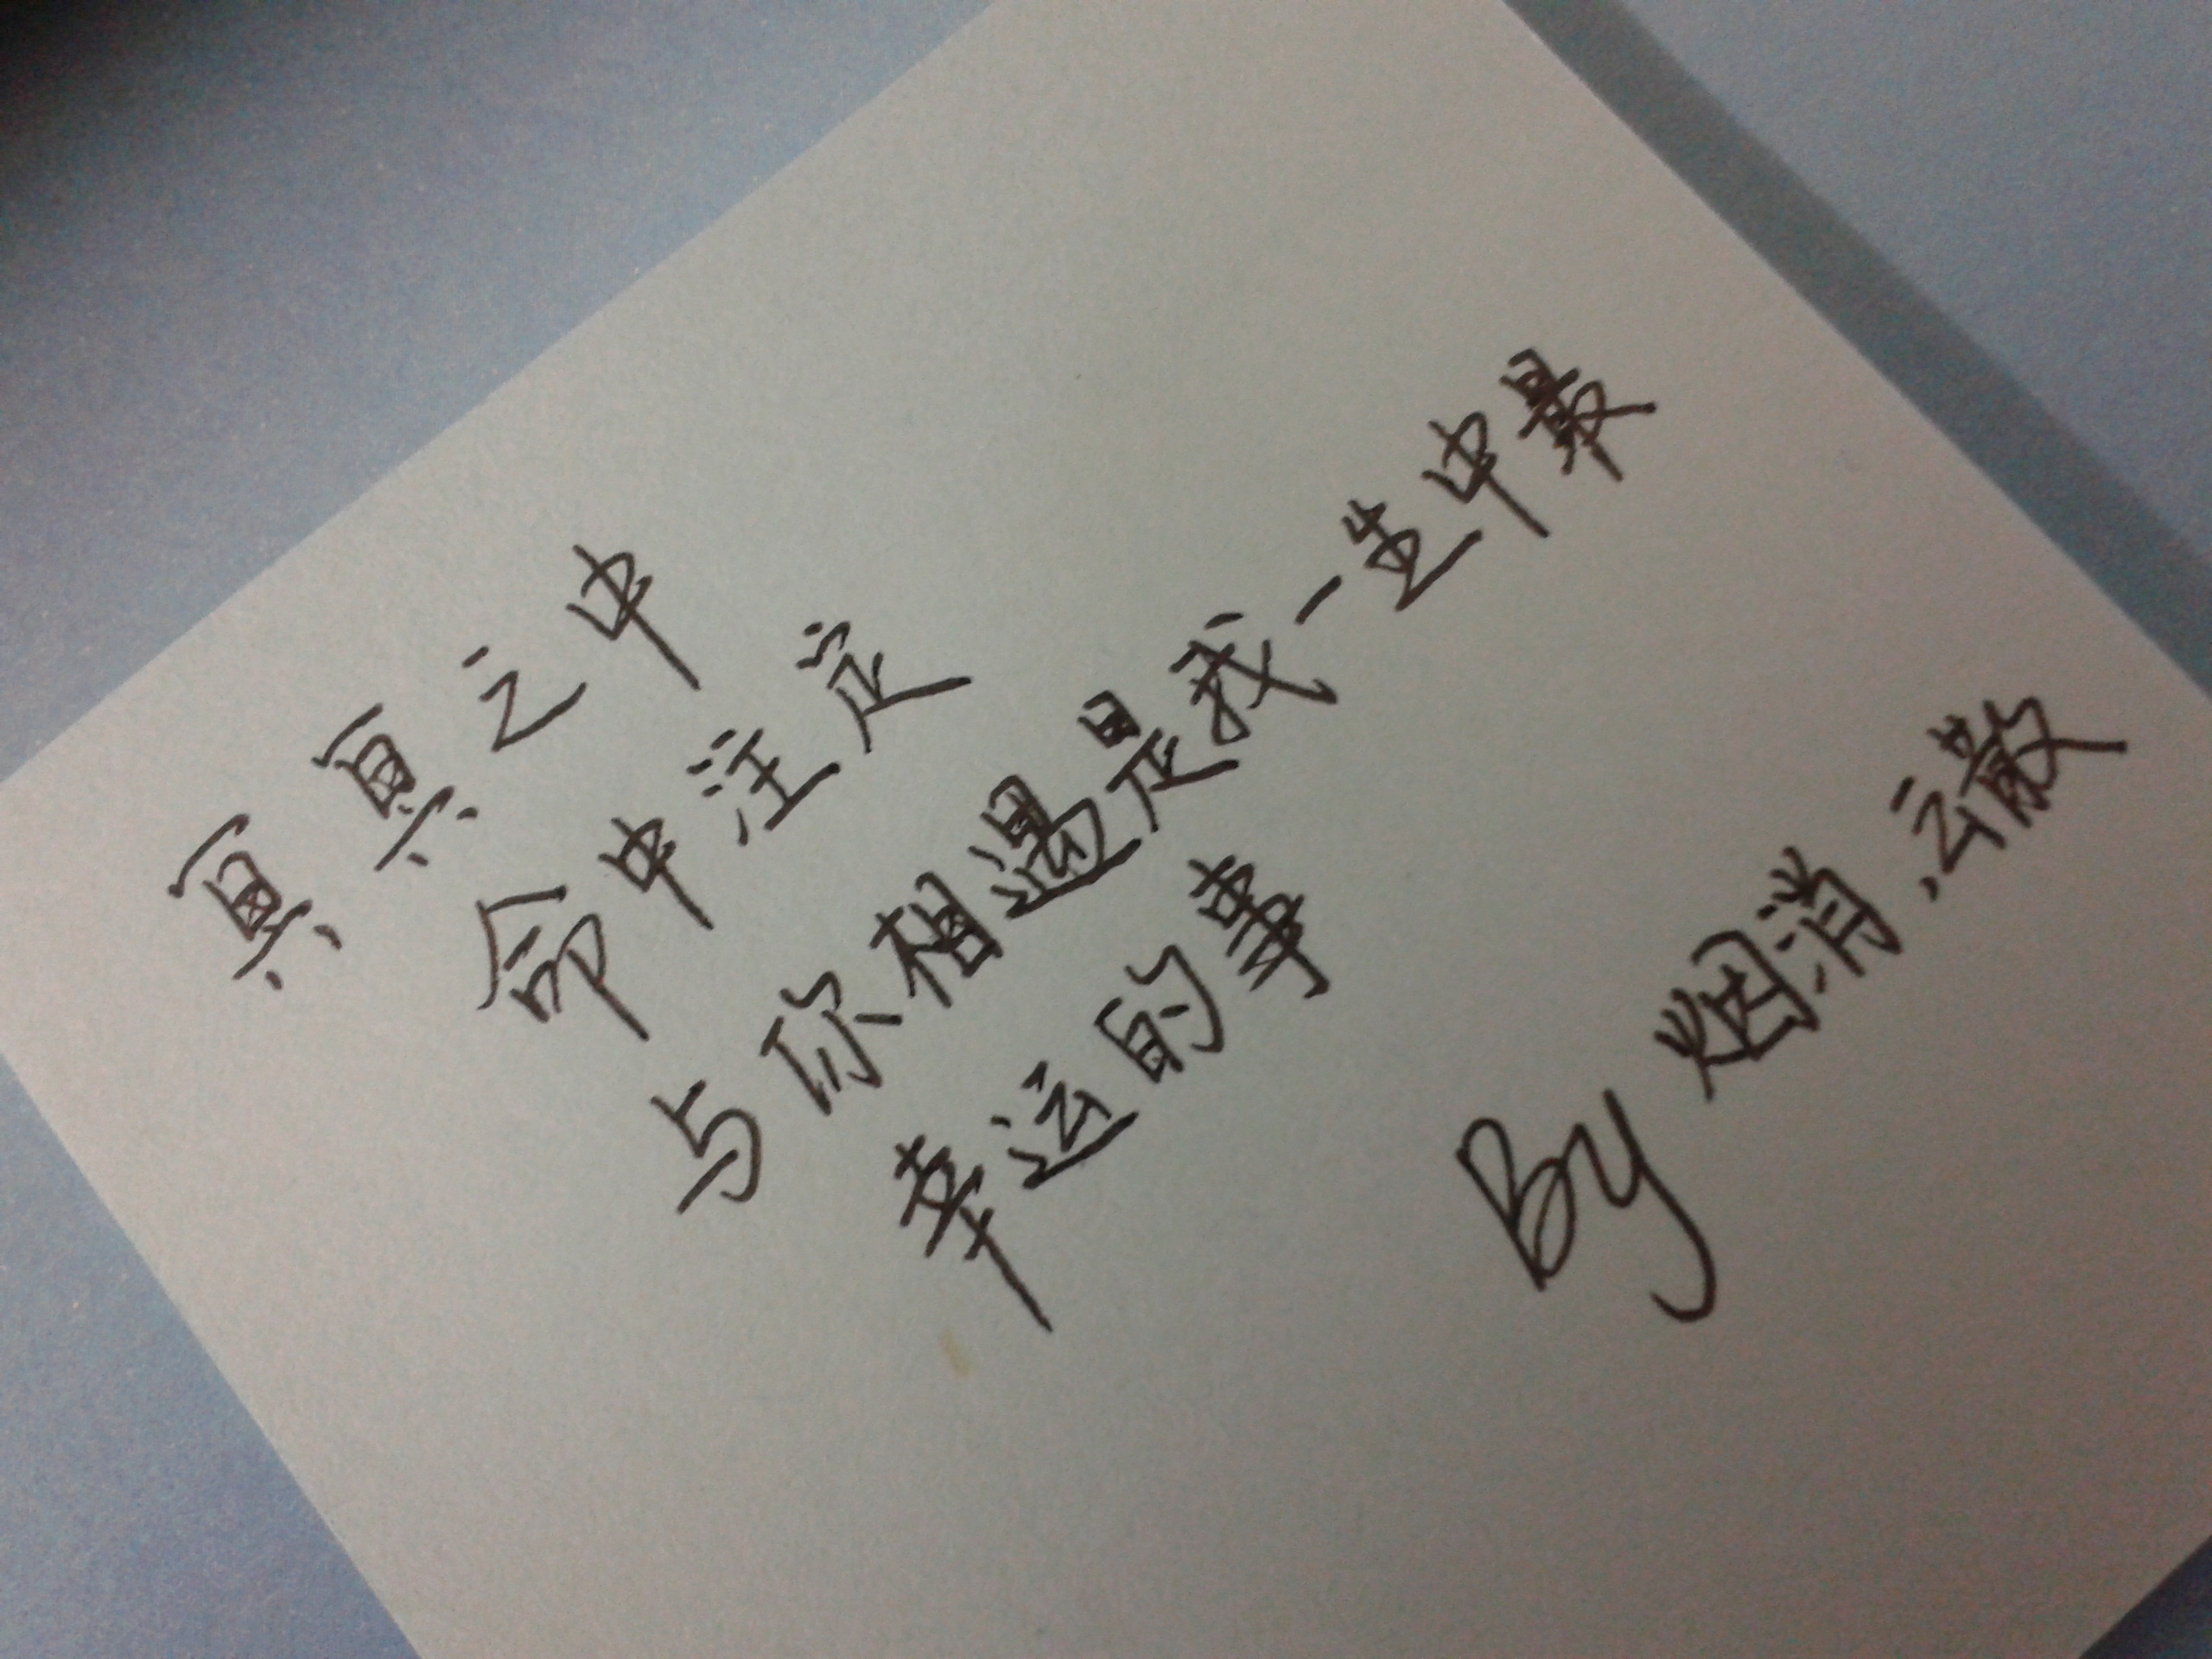 冥冥之中
命中注定
与你相遇是我一生中最
幸运的事
By 烟消.云散